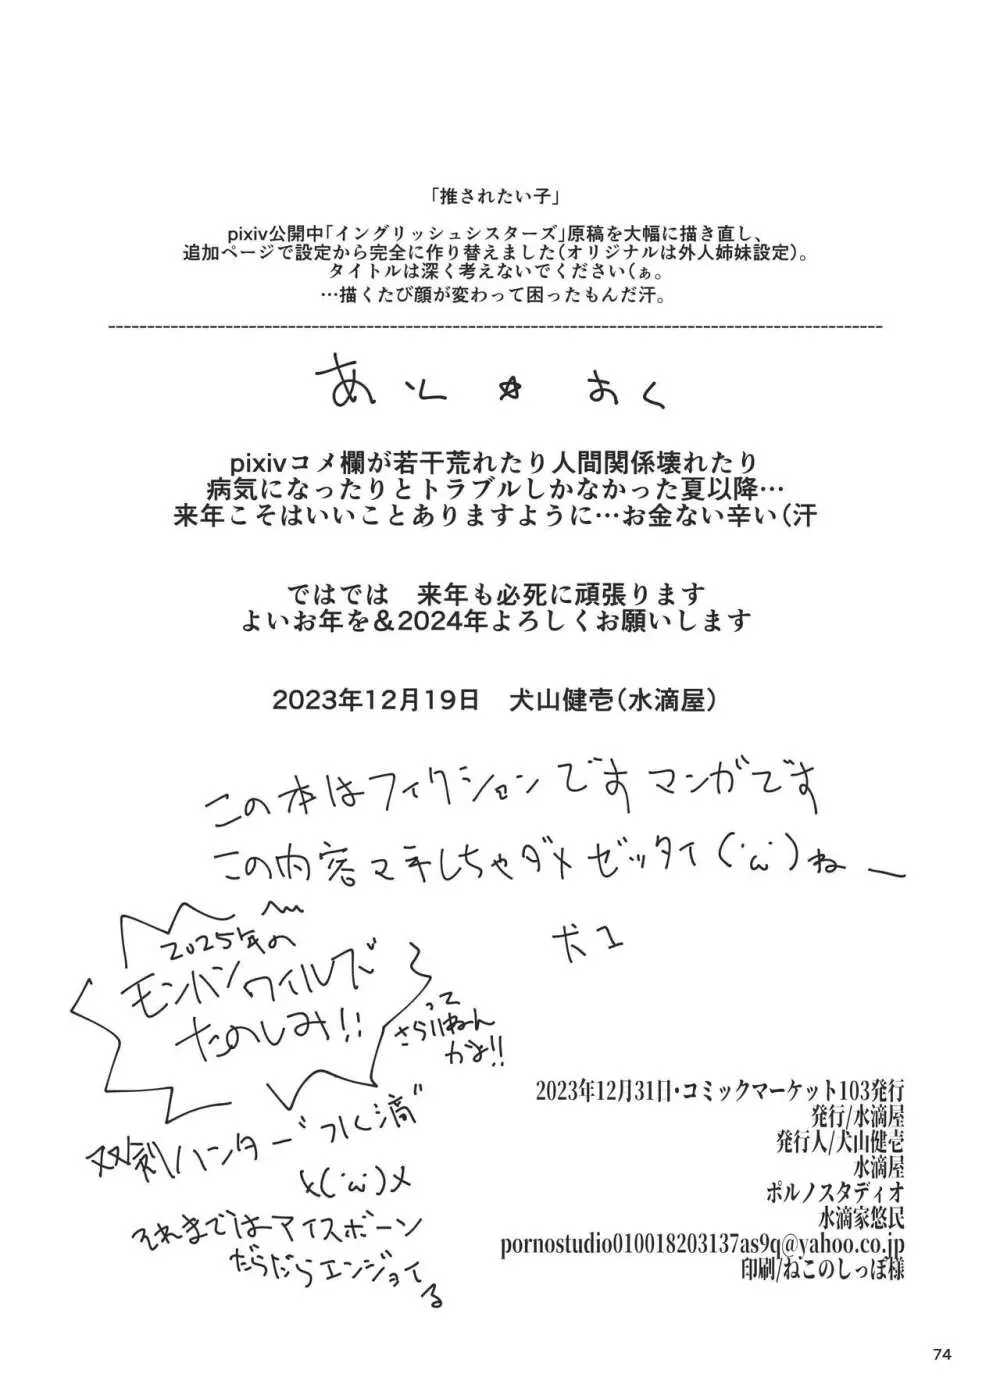 「推されたい子」
pixiv公開中「イングリッシュシスターズ」原稿を大幅に描き直し、
追加ページで設定から完全に作り替えました(オリジナルは外人姉妹設定)。
タイトルは深く考えないでください(ぁ。
…描くたび顔が変わって困ったもんだ汗。
あと☆おく
pixivコメ欄が若干荒れたり人間関係壊れたり
病気になったりとトラブルしかなかった夏以降…
来年こそはいいことありますように…お金ない辛い(汗
ではでは　来年も必死に頑張ります
よいお年を&2024年よろしくお願いします
2023年12月19日　犬山健壱(水滴屋)
この本はフィクションですマンガです
この内容マネしちゃダメゼッタイ(・ω・)ねー
犬1
2025年の
モンハンワイルズ
たのしみ!!
って
さらいねん
かよ!!
双剣ハンター"つく滴"
メ(・ω・)メ
それまではアイスボーン
だらだらエンジョイ
る
2023年12月31日・コミックマーケット103発行
発行/水滴屋
発行人/犬山健壱
水滴屋
ポルノスタディオ
水滴家悠民
pornostudio010018203137as9q@yahoo.co.jp
印刷/ねこのしっぽ様
74